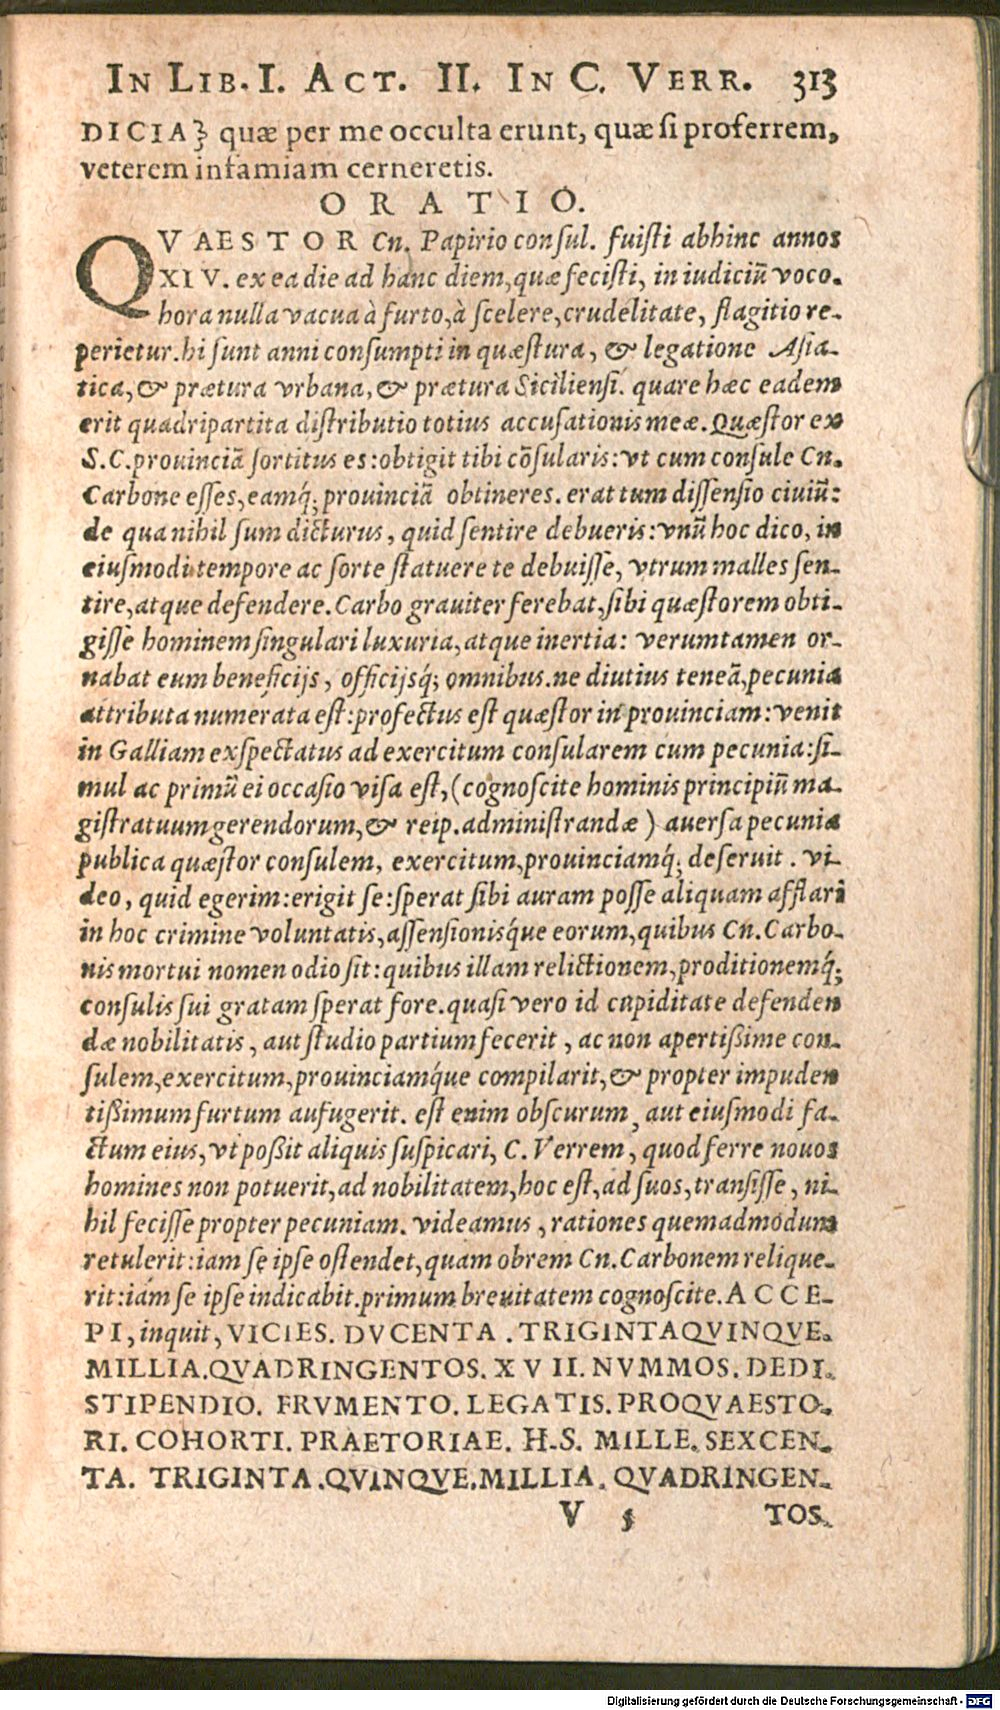 IN LIB. I. ACT. II. IN C. VERR. 313
DICIA} quæ per me occulta erunt, quæ ſi proferrem,
veterem infamiam cerneretis.
ORATIO.
QVAESTOR Cn. Papirio conſul. fuiſti abhinc annos
XIV. ex ea die ad hanc diem, quæ feciſti, in iudiciũ voco.
hora nulla vacua à furto, à ſcelere, crudelitate, flagitio re-
perietur. hi ſunt anni conſumpti in quæſtura, & legatione Aſia-
tica, & prætura vrbana, & prætura Sicilienſi. quare hæc eadem
erit quadripartita diſtributio totius accuſationis meæ. Quæſtor ex
S.C. prouinciã ſortitus es: obtigit tibi cõſularis: vt cum conſule Cn.
Carbone eſſes, eamq́; prouinciã obtineres. erat tum diſſenſio ciuiũ:
de qua nihil ſum dicturus, quid ſentire debueris: vnũ hoc dico, in
eiuſmodi tempore ac ſorte ſtatuere te debuiſſe, vtrum malles ſen-
tire, atque defendere. Carbo grauiter ferebat, ſibi quæſtorem obti-
giſſe hominem ſingulari luxuria, atque inertia: verumtamen or-
nabat eum beneficijs, officijsq́; omnibus. ne diutius teneã, pecunia
attributa numerata eſt: profectus eſt quæſtor in prouinciam: venit
in Galliam exſpectatus ad exercitum conſularem cum pecunia: ſi-
mul ac primũ ei occaſio viſa eſt, (cognoſcite hominis principiũ ma-
giſtratuum gerendorum, & reip. adminiſtrandæ) auerſa pecunia
publica quæſtor conſulem, exercitum, prouinciamq́; deſeruit. vi-
deo, quid egerim: erigit ſe: ſperat ſibi auram poſſe aliquam afflari
in hoc crimine voluntatis, aſſenſionisq́ue eorum, quibus Cn. Carbo-
nis mortui nomen odio ſit: quibus illam relictionem, proditionemq́;
conſulis ſui gratam ſperat fore. quaſi vero id cupiditate defenden
dæ nobilitatis, aut ſtudio partium fecerit, ac non apertißime con-
ſulem, exercitum, prouinciamq́ue compilarit, & propter impuden
tißimum furtum aufugerit. eſt enim obſcurum, aut eiuſmodi fa-
ctum eius, vt poßit aliquis ſuſpicari, C. Verrem, quod ferre nouos
homines non potuerit, ad nobilitatem, hoc eſt, ad ſuos, tranſiſſe, ni-
hil feciſſe propter pecuniam. videamus, rationes quemadmodum
retulerit: iam ſe ipſe oſtendet, quam obrem Cn. Carbonem relique-
rit: iam ſe ipſe indicabit. primum breuitatem cognoſcite. ACCE-
PI, inquit, VICIES. DVCENTA. TRIGINTAQVINQVE.
MILLIA. QVADRINGENTOS. XVII. NVMMOS. DEDI.
STIPENDIO. FRVMENTO. LEGATIS. PROQVAESTO-
RI. COHORTI. PRAETORIAE. H-S. MILLE. SEXCEN-
TA. TRIGINTA. QVINQVE. MILLIA. QVADRINGEN-
V 5 TOS.
Digitalisierung gefördert durch die Deutsche Forschungsgemeinschaft - DFG